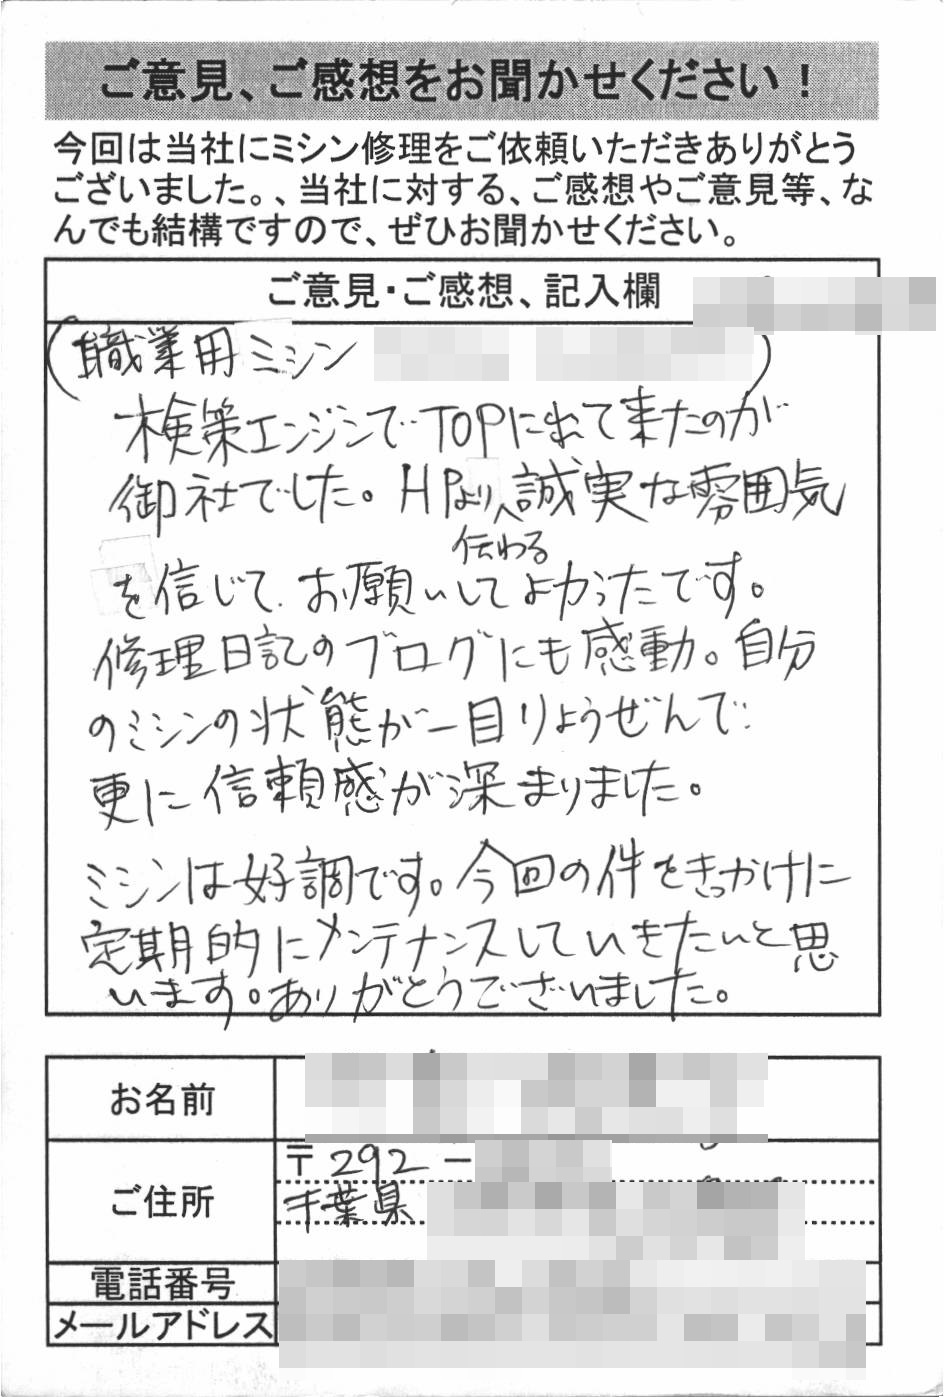 ご意見、ご感想をお聞かせください！
今回は当社にミシン修理をご依頼いただきありがとう
ございました。、当社に対する、ご感想やご意見等、な
んでも結構ですので、ぜひお聞かせください。
ご意見・ご感想、記入欄
(職業用ミシン )
検策エンジンでTOPに出て来たのが
御社でした。HPより誠実な雰囲気
伝わる
を信じて、お願いしてよかったです。
修理日記のブログにも感動。自分
のミシンの状態が一目りょうぜんで
更に信頼感が深まりました。
ミシンは好調です。今回の件をきっかけに
定期的にメンテナンスしていきたいと思
います。ありがとうございました。
お名前
ご住所
〒292－
千葉県
電話番号
メールアドレス